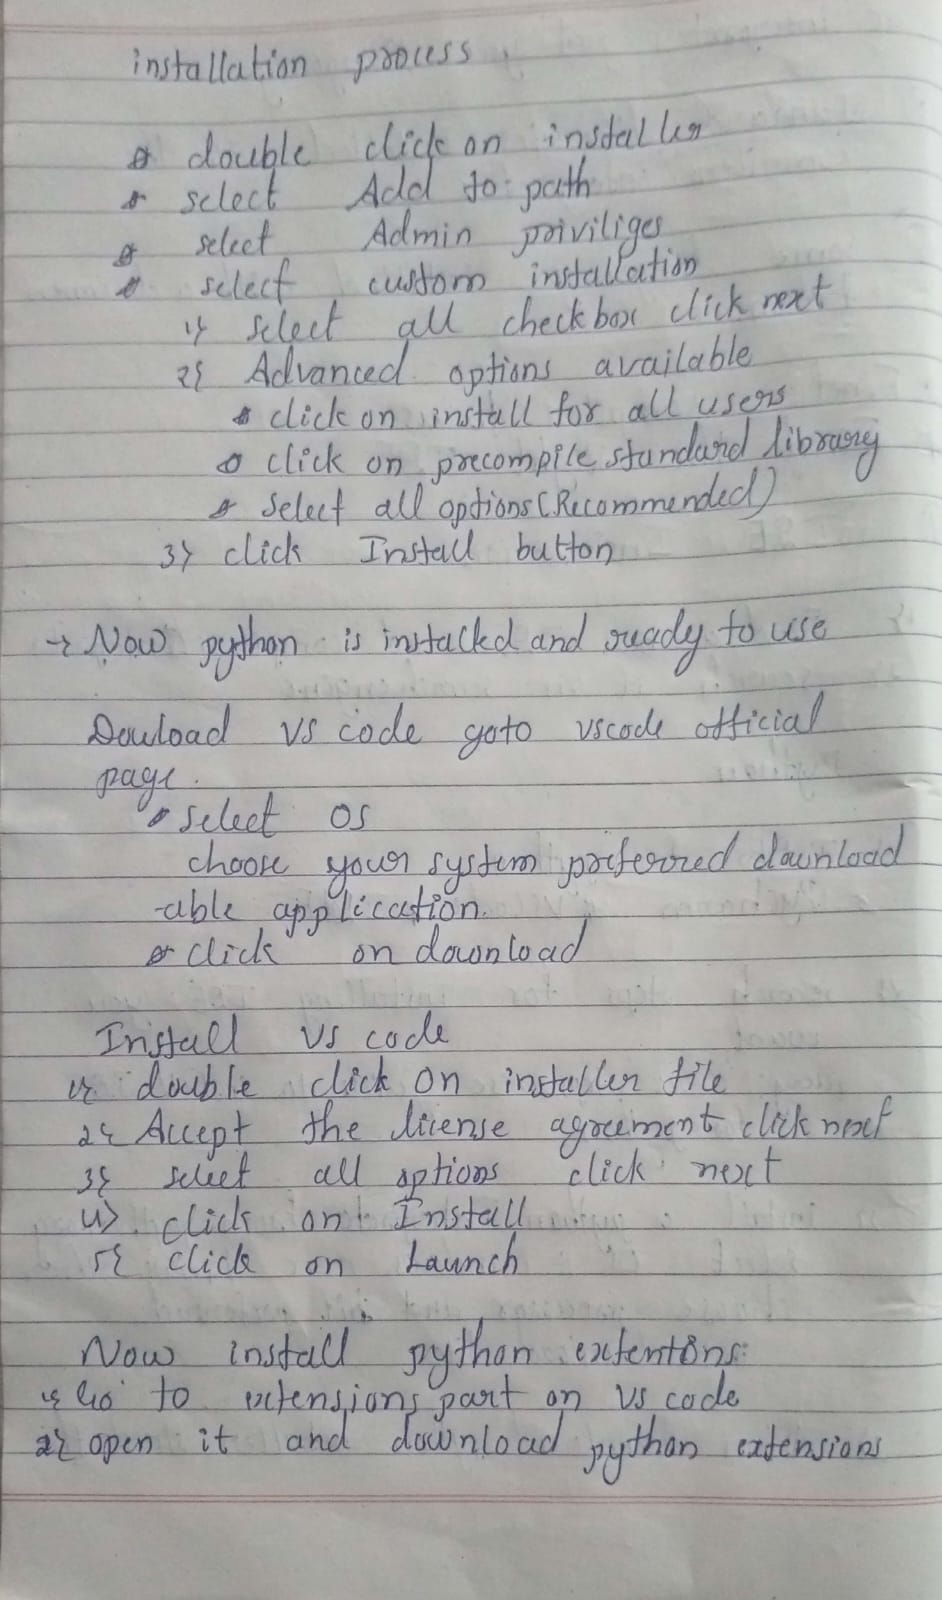 installation process
* double click on installer
* select Add to path
* select Admin priviliges
* select custom installation
1} select all checkbox click next
2} Advanced options available
* click on install for all users
* click on precompile standard library
* Select all options (Recommended)
3} click Install button
→ Now python is installed and ready to use
Douload vs code goto vscode official
page.
* select OS
choose your system preferred download
-able application.
* click on download
Install vs code
1} double click on installer file
2} Accept the license agreement click next
3} select all options click next
4} click on Install
5} click on Launch
Now install python extentions:
1} Go to extensions part on vs code
2} open it and download python extensions